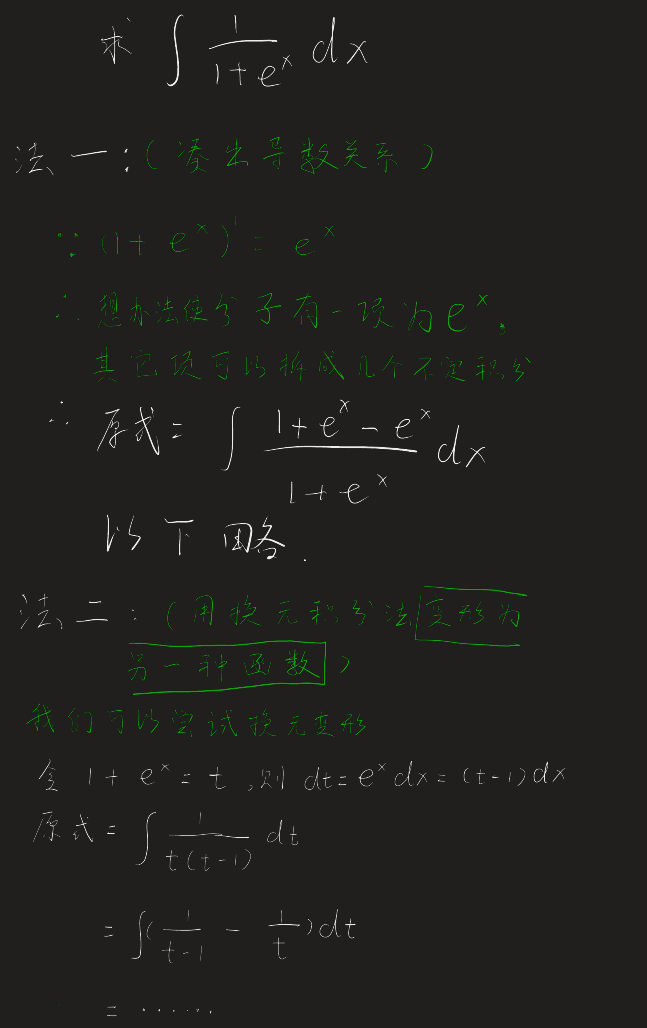 求 ∫ 1/(1+e^x) dx
法一:(凑出导数关系)
∵ (1+e^x)' = e^x
∴ 想办法使分子有一项为e^x,
其它项可以拆成几个不定积分
∴ 原式= ∫ (1+e^x-e^x)/(1+e^x) dx
以下略.
法二:(用换元积分法变形为
另一种函数)
我们可以尝试换元变形
令 1+e^x=t,则 dt=e^x dx=(t-1)dx
原式= ∫ 1/(t(t-1)) dt
= ∫(1/(t-1) - 1/t)dt
= ......